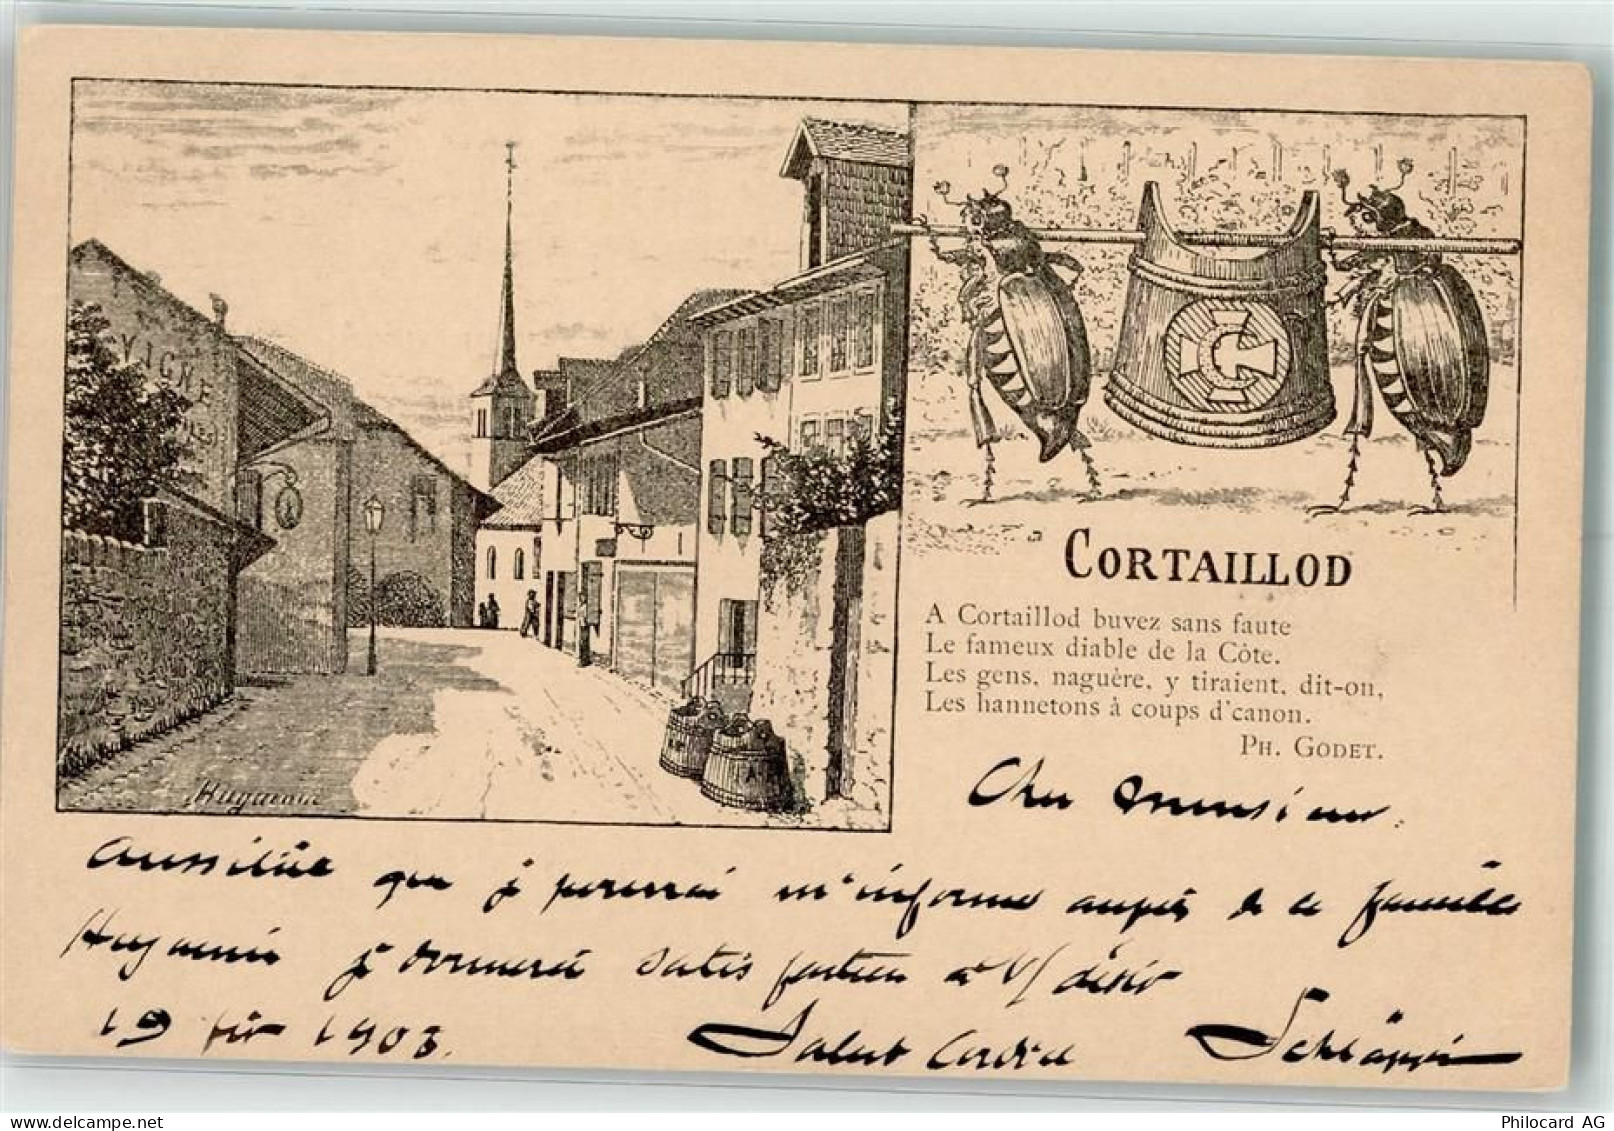 VIGNE
CORTAILLOD
A Cortaillod buvez sans faute
Le fameux diable de la Côte.
Les gens, naguère, y tiraient, dit-on,
Les hannetons à coups d'canon.
PH. GODET.
Huguenin
Cher monsieur
aussitôt que je pourrai m'informe auprès de la famille
Huguenin je donnerai satisfaction à V/ désir
19 fév 1903.
Salut Cordial Schläppi
Philocard AG